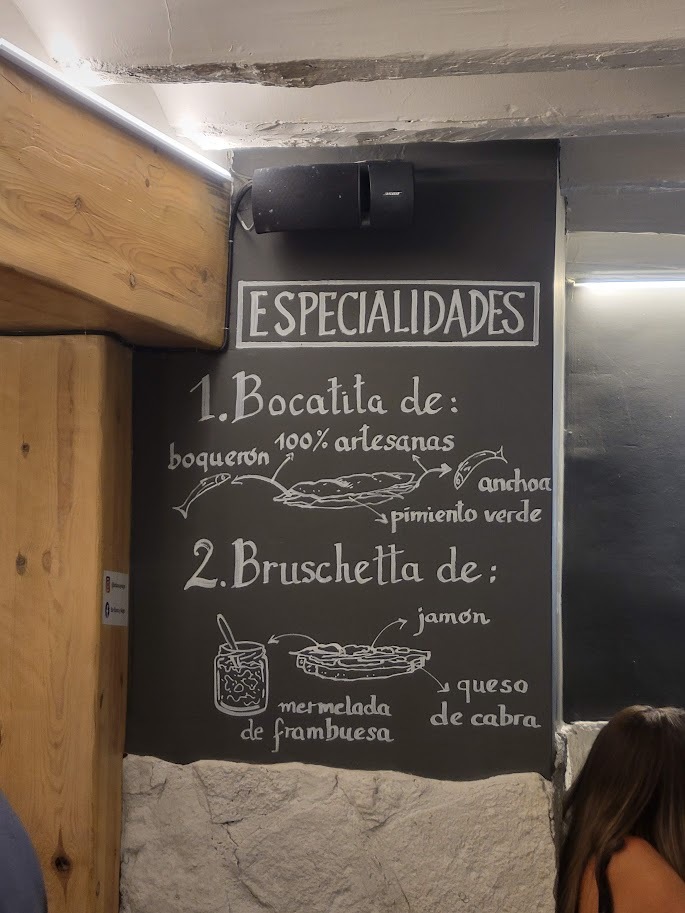 BOSE
ESPECIALIDADES
1. Bocatita de:
boquerón 100% artesanas
anchoa
pimiento verde
2. Bruschetta de:
jamón
queso
de cabra
mermelada
de frambuesa